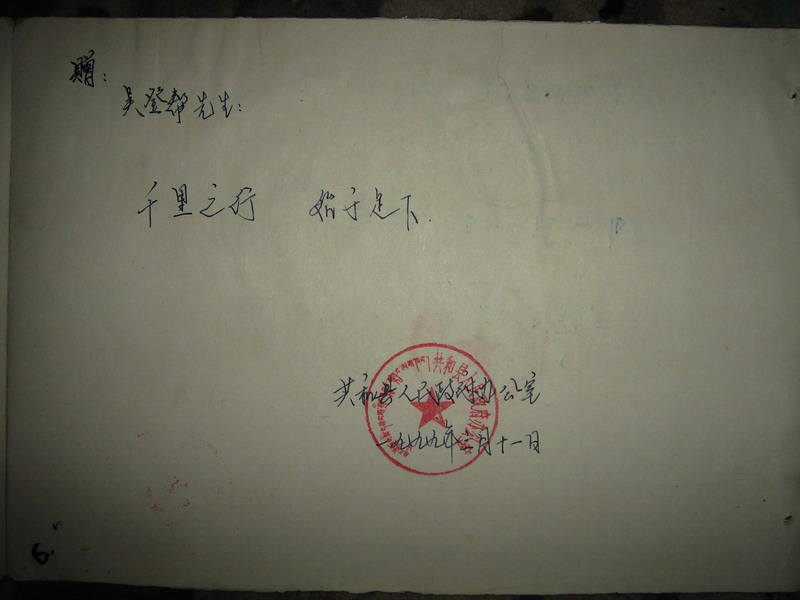 赠：
吴登帮先生：
千里之行 始于足下.
共和县人民政府办公室
一九九九年二月十一日
共和县
6.